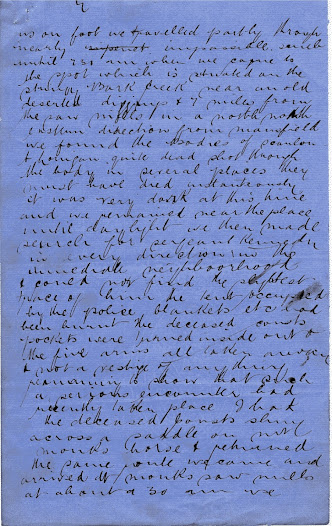 us on foot we travelled partly through
nearly impassable scrub
until 2.30 am when we came to
the spot which is situated on the
stringy Bark Creek near an old
deserted diggings & 7 miles from
the saw mills in a north north
eastern direction from mansfield
we found the bodies of scanlon
& Lonigan quite dead shot through
the body in several places they
must have died instantaneously
it was very dark at this time
and we remained near the place
until daylight we then made
search for sergeant Kennedy
in every direction in the
immediate neighbourhood
& could not find the slightest
trace of him the tent occupied
by the police blankets etc had
been burnt the deceased consts
pockets were turned inside out &
the fire arms all taken away
& not a vestige of anything
remaining to show that such
a serious encounter had
recently taken place I had
the deceased consts slung
across a saddle on
monks horse & returned
the same route we came and
arrived at monks saw mills
at about 30 am we